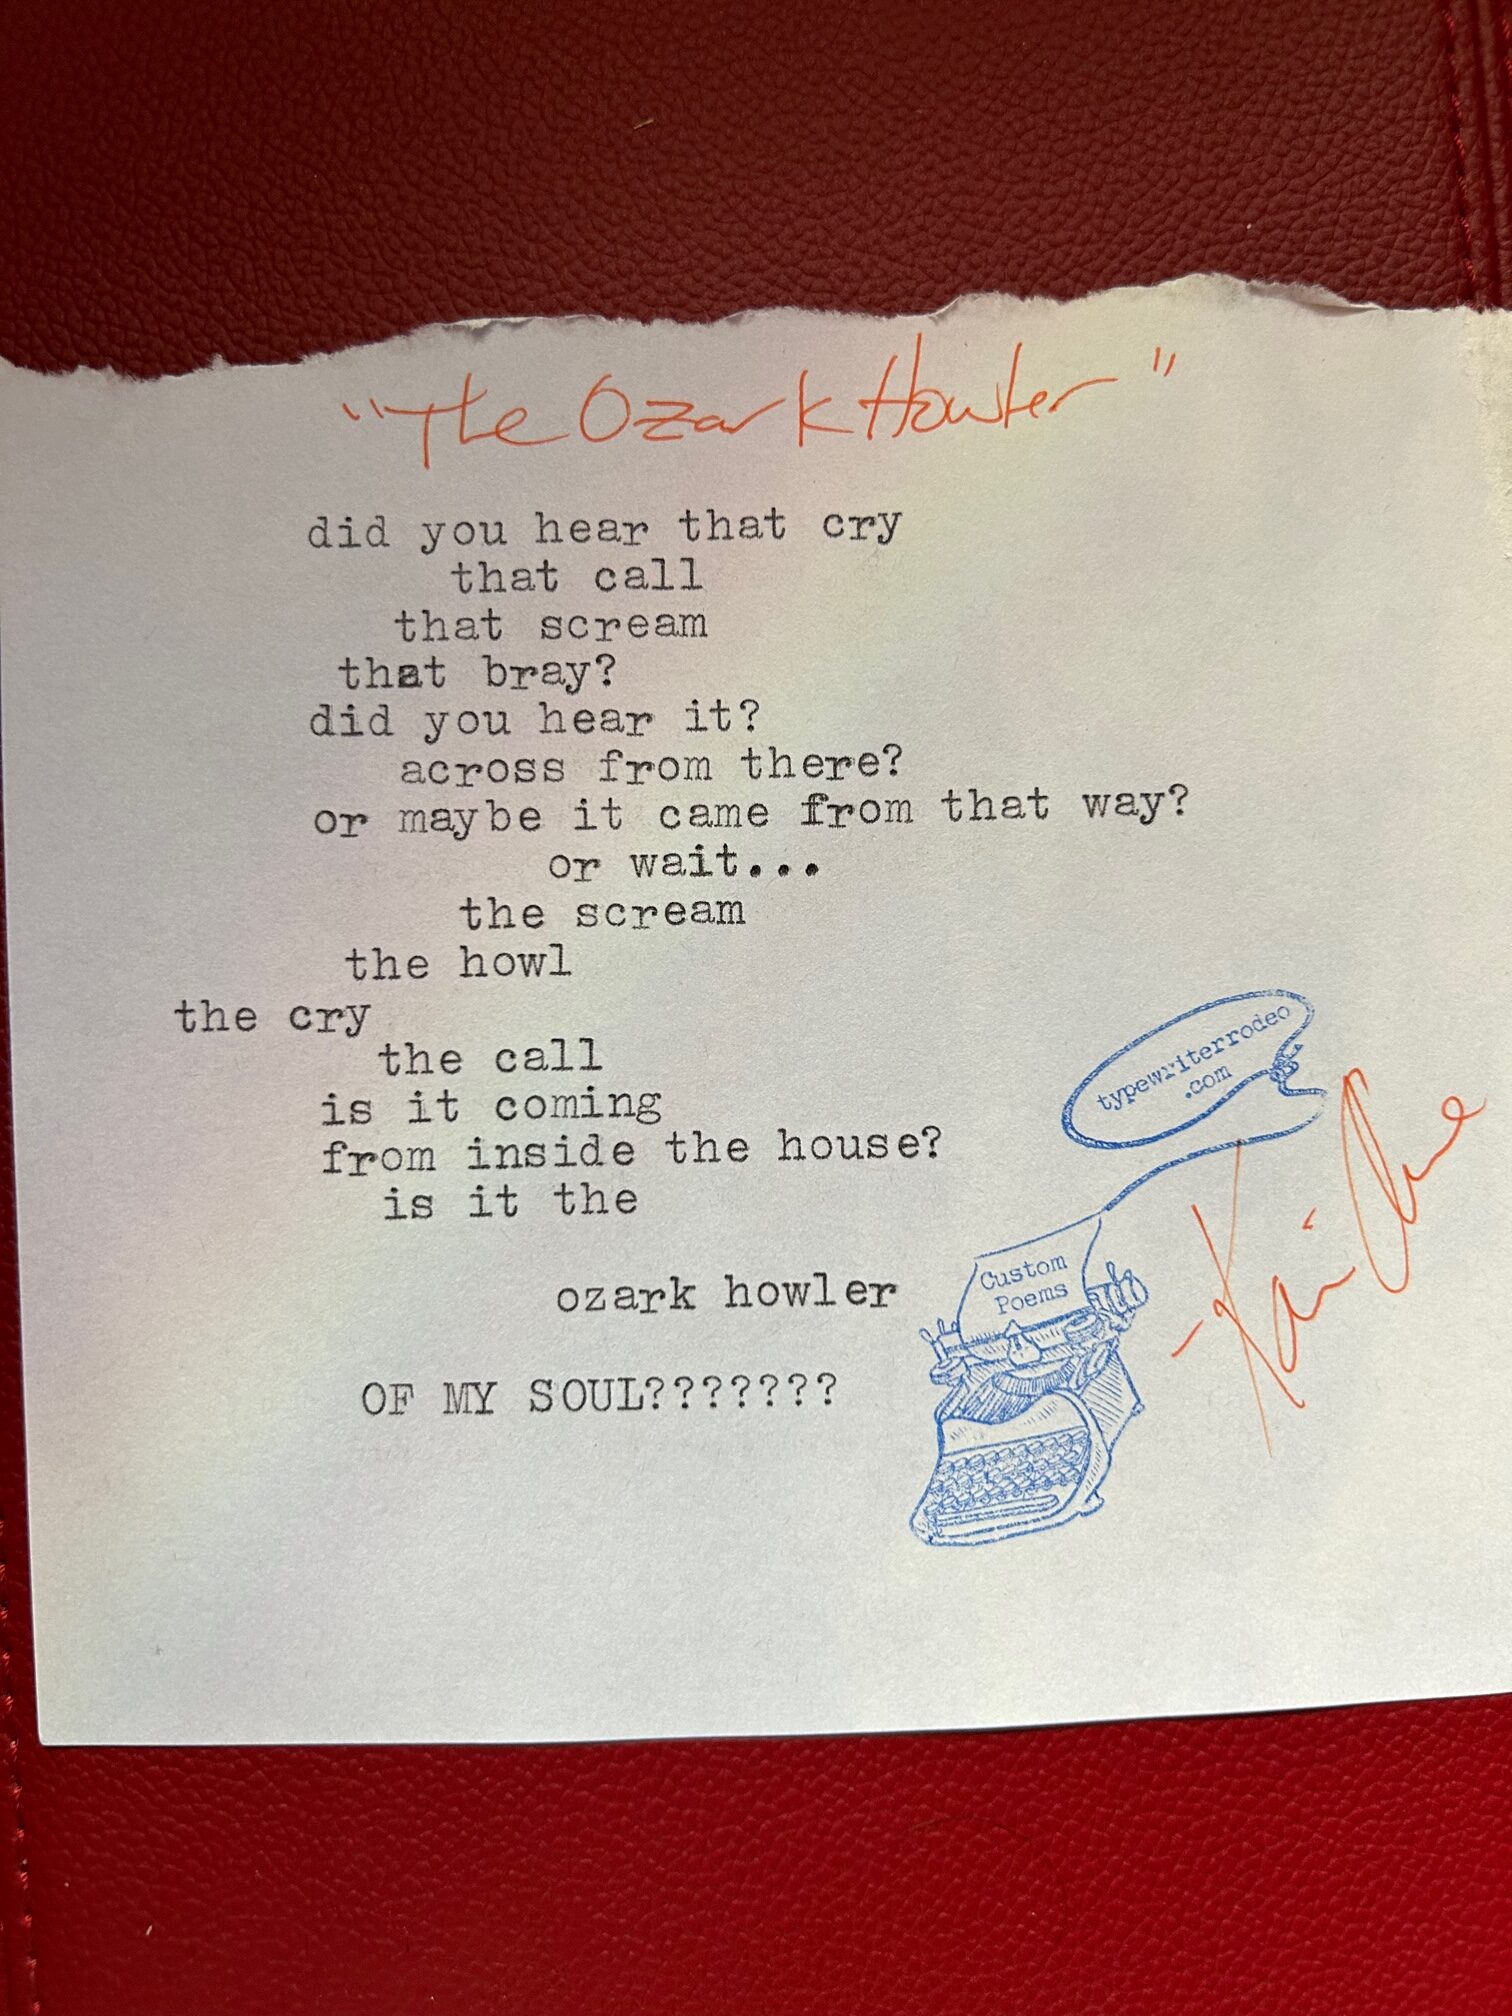 "The Ozark Howler"
did you hear that cry
that call
that scream
that bray?
did you hear it?
across from there?
or maybe it came from that way?
or wait...
the scream
the howl
the cry
the call
is it coming
from inside the house?
is it the
ozark howler
OF MY SOUL???????
typewriterrodeo
.com
Custom
Poems